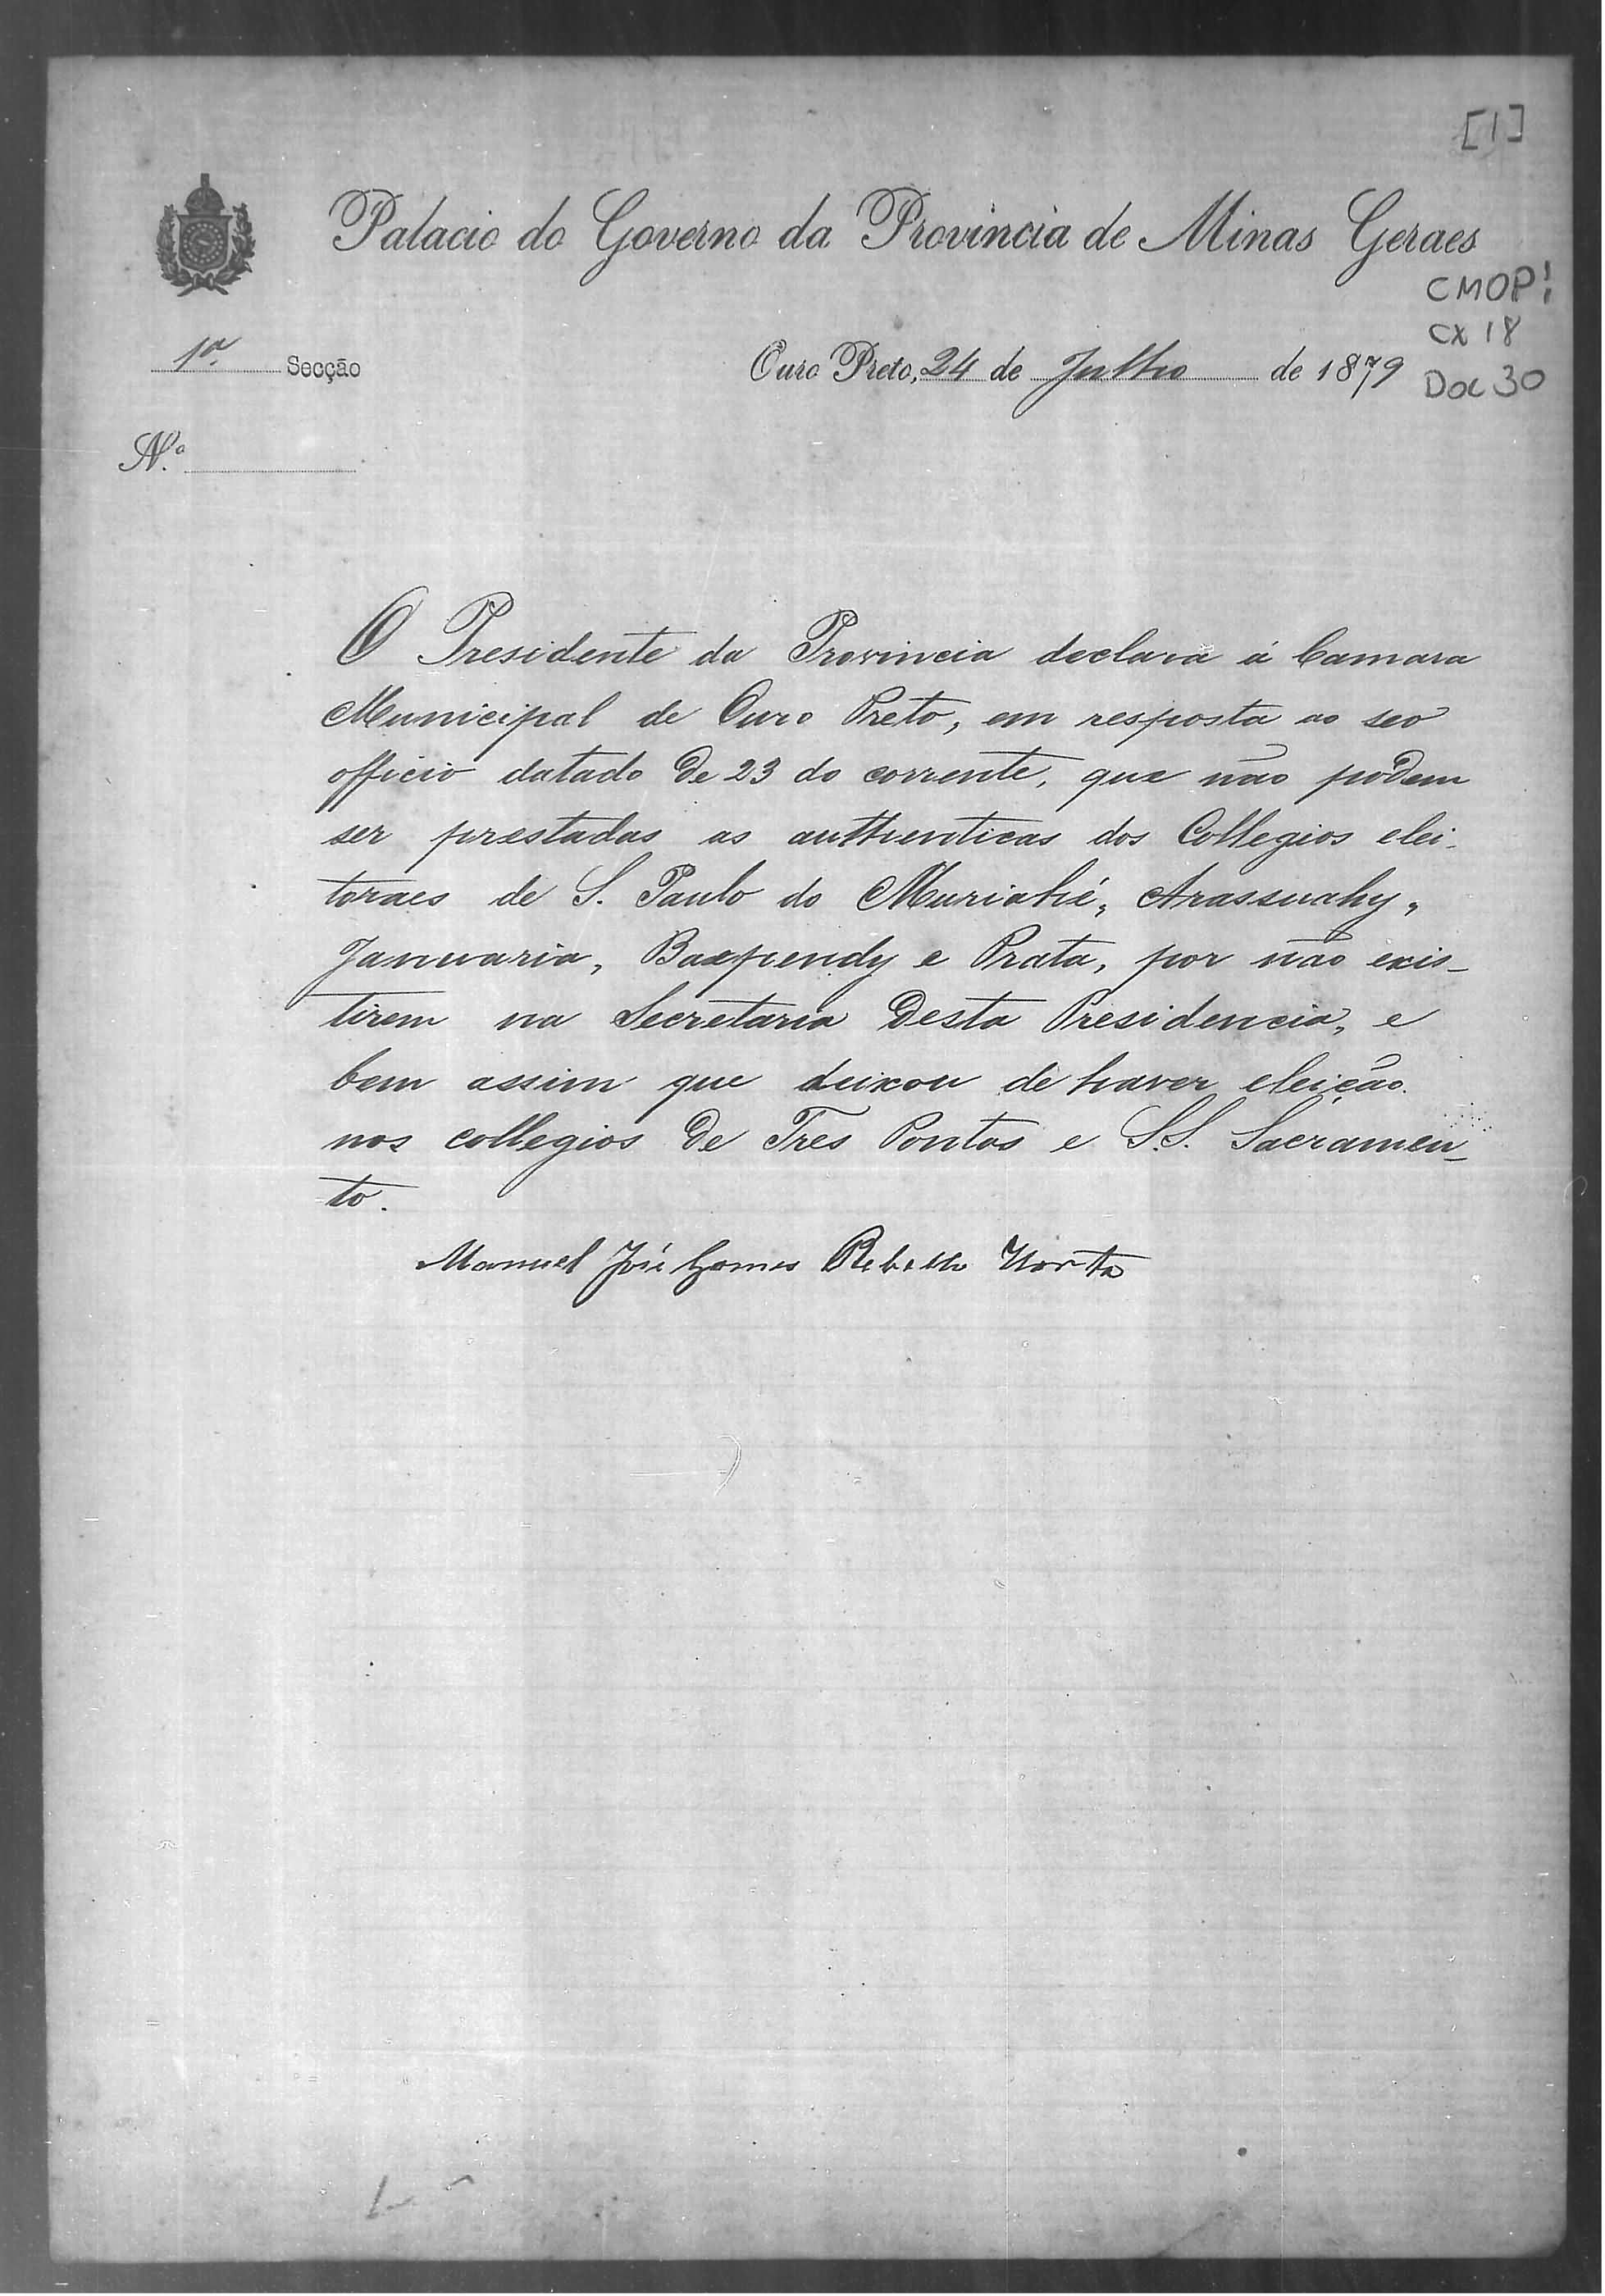 [1]
Palacio do Governo da Provincia de Minas Geraes
CMOP!
CX 18
Doc 30
1ª Secção
Ouro Preto, 24 de Julho de 1879
N.º
O Presidente da Provincia declara á Camara
Municipal de Ouro Preto, em resposta ao seo
officio datado de 23 do corrente, que não podem
ser prestadas as authenticas dos Collegios elei-
toraes de S. Paulo do Muriahé, Arassuahy,
Januaria, Baependy e Prata, por não exis-
tirem na Secretaria desta Presidencia, e
bem assim que deixou de haver eleição
nos collegios de Tres Pontas e S.S. Sacramen-
to.
Manuel José Gomes Rebello Horta